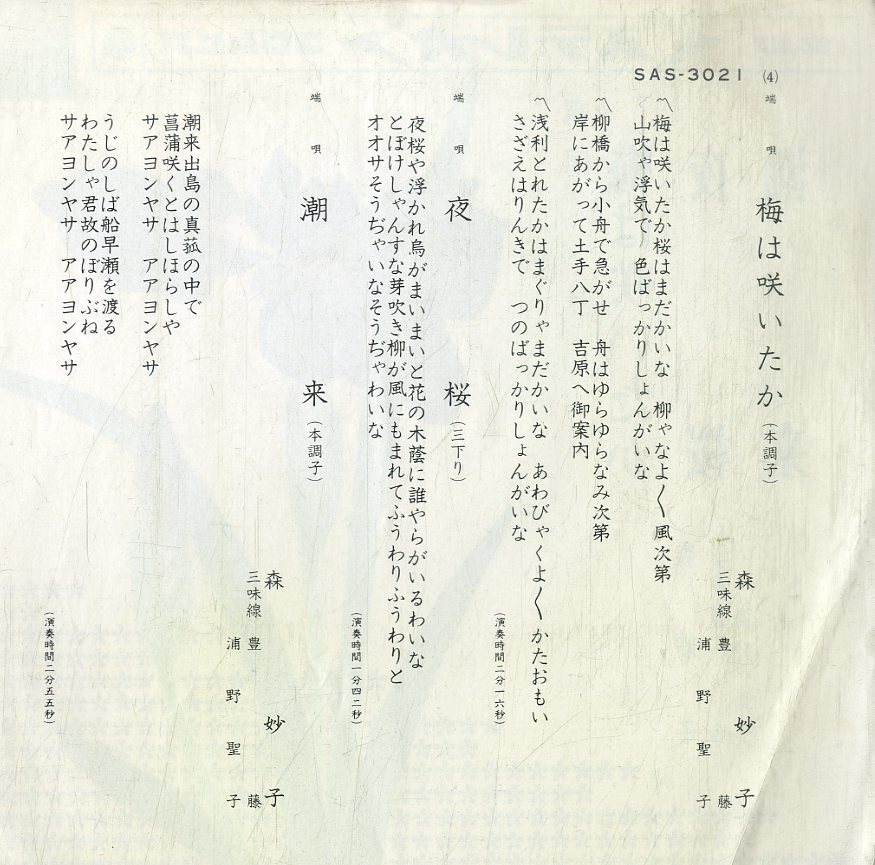 SAS-3021 (4)
端唄 梅は咲いたか(本調子)
森妙子
三味線 豊藤
浦野聖子
〽梅は咲いたか桜はまだかいな 柳ゃなよ〱風次第
山吹ゃ浮気で 色ばっかりしょんがいな
〽柳橋から小舟で急がせ 舟はゆらゆらなみ次第
岸にあがって土手八丁 吉原へ御案内
〽浅利とれたかはまぐりゃまだかいな あわびゃくよ〱かたおもい
さざえはりんきで つのばっかりしょんがいな
(演奏時間二分一六秒)
端唄 夜桜(三下り)
夜桜や浮かれ烏がまいまいと花の木蔭に誰やらがいるわいな
とぼけしゃんすな芽吹き柳が風にもまれてふうわりふうわりと
オオサそうぢゃいなそうぢゃわいな
(演奏時間一分四二秒)
端唄 潮来(本調子)
森妙子
三味線 豊藤
浦野聖子
潮来出島の真菰の中で
菖蒲咲くとはしほらしや
サアヨンヤサ アアヨンヤサ
うじのしば船早瀬を渡る
わたしゃ君故のぼりぶね
サアヨンヤサ アアヨンヤサ
(演奏時間二分五五秒)